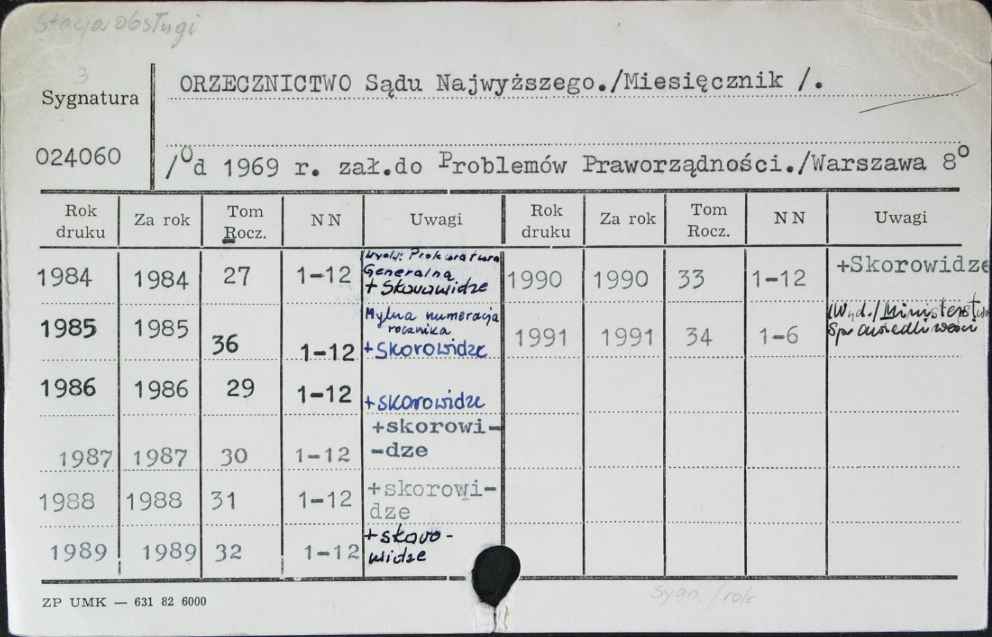 Stacja obsługi
3
Sygnatura
ORZECZNICTWO Sądu Najwyższego./Miesięcznik /.
024060
/Od 1969 r. zał.do Problemów Praworządności./Warszawa 8o
Rok druku Za rok Tom Rocz. NN Uwagi Rok druku Za rok Tom Rocz. NN Uwagi
1984 1984 27 1-12 Wyd.: Prokuratura Generalna + Skorowidze 1990 1990 33 1-12 +Skorowidze
1985 1985 36 1-12 Mylna numeracja rocznika +Skorowidze 1991 1991 34 1-6 /Wyd./Ministerstwo Sprawiedliwości
1986 1986 29 1-12 +skorowidze
1987 1987 30 1-12 +skorowi-
-dze
1988 1988 31 1-12 +skorowi-
dze
1989 1989 32 1-12 +skoro-
widze
ZP UMK — 631 82 6000
Sygn. /rok